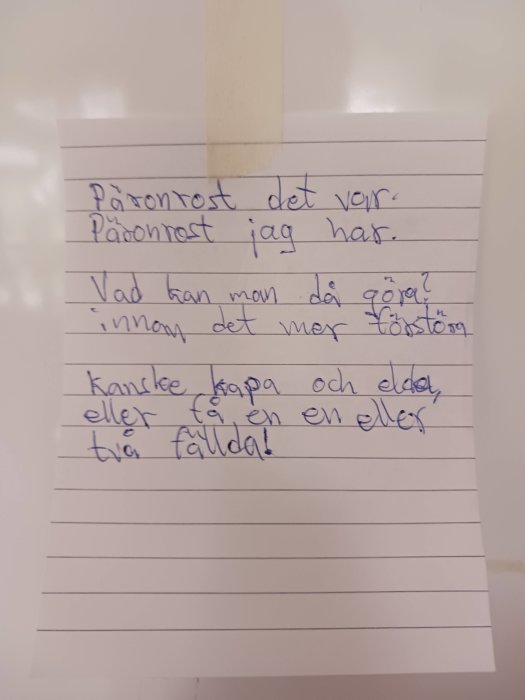 Päronrost det var.
Päronrost jag har.
Vad kan man då göra?
innan det mer förstöra
Kanske kapa och elda,
eller få en en eller
två fällda!